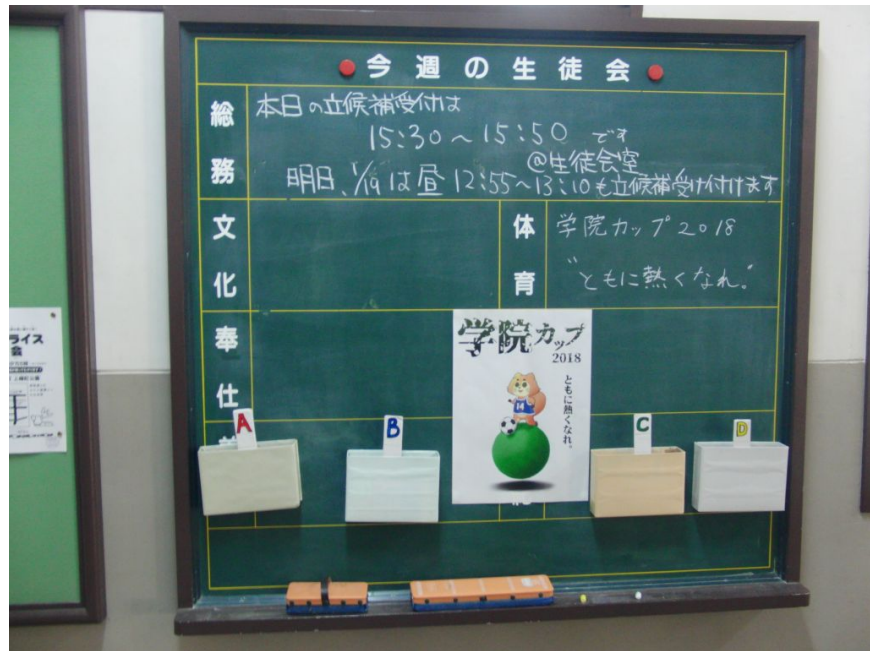 今週の生徒会
総務
本日の立候補受付は
15:30～15:50 です
@生徒会室
明日、1/19は昼12:55～13:10も立候補受け付けます
文化
体育
学院カップ2018
"ともに熱くなれ。"
奉仕
学院カップ
2018
ともに熱くなれ。
14
A
B
C
D
ライス
会